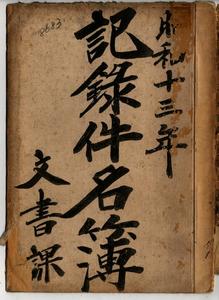 昭和十三年
記録件名簿
文書課
8683